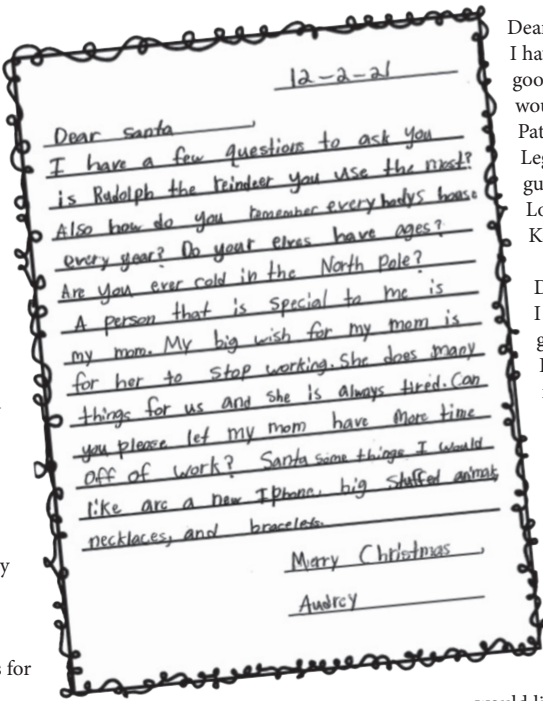 12-2-21
Dear santa,
I have a few questions to ask you
is Rudolph the reindeer you use the most?
Also how do you remember everybodys house
every year? Do your elves have ages?
Are you ever cold in the North Pole?
A person that is special to me is
my mom. My big wish for my mom is
for her to stop working. She does many
things for us and she is always tired. Can
you please let my mom have more time
off of work? Santa some things I would
like are a new Iphone, big stuffed animal,
necklaces, and bracelets.
Merry Christmas,
Audrey
Dear
I hav
goo
wou
Pat
Leg
gu
Lo
K
D
I
g
y
s for
would li